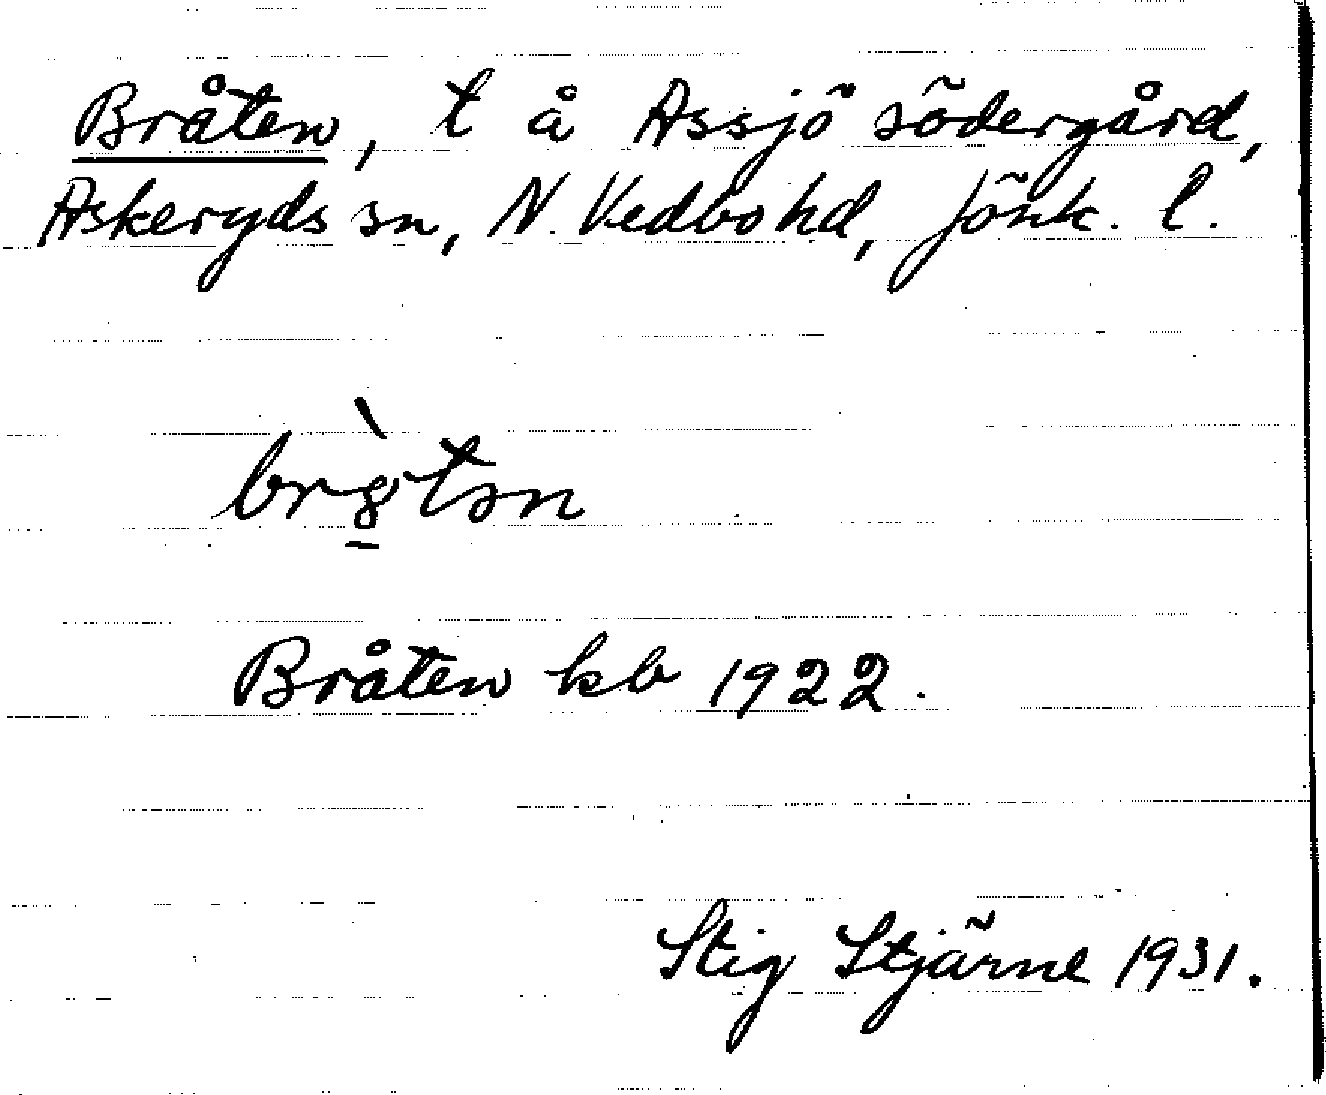 Bråten, t å Assjö södergård,
Askeryds sn, N. Vedbo hd, Jönk. l.
Bråten kb 1922.
Stig Stjärne 1931.